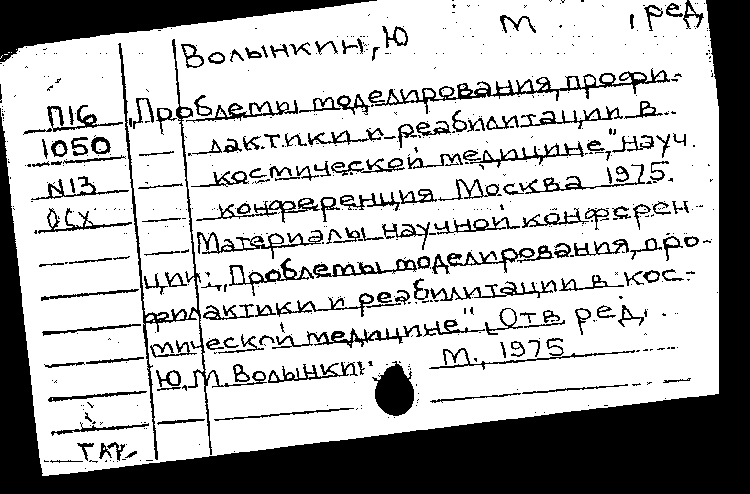 Волынкин, Ю М. , ред,
П16 „Проблемы моделирования, профи-
1050 лактики и реабилитации в
N13 космической медицине," науч.
ОСХ конференция. Москва 1975.
Материалы научной конферен-
ции: „Проблемы моделирования, про-
филактики и реабилитации в кос-
мической медицине". Отв. ред.
Ю.М. Волынкин. М., 1975.